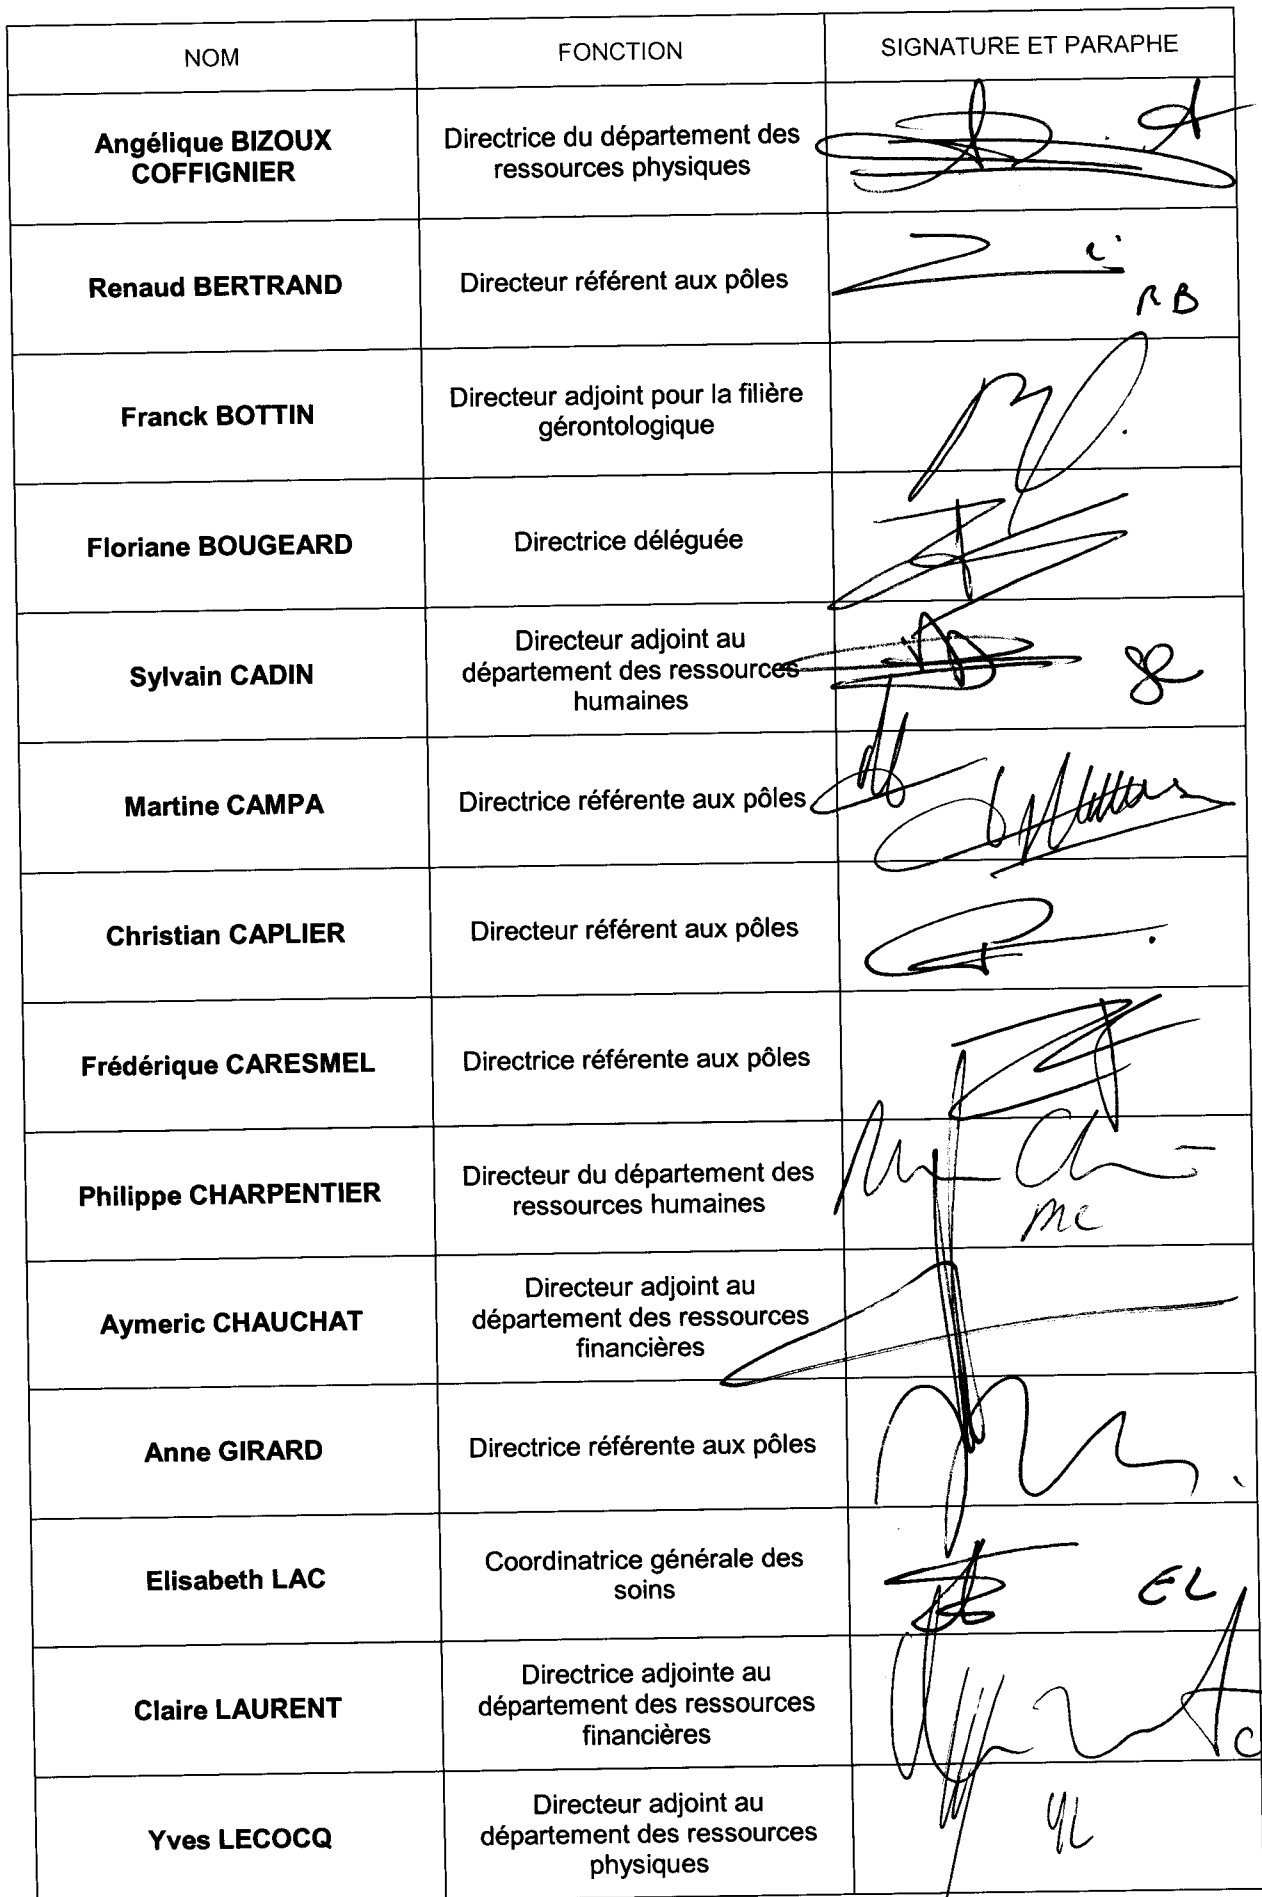 NOM
FONCTION
SIGNATURE ET PARAPHE
Angélique BIZOUX
COFFIGNIER
Directrice du département des
ressources physiques
Renaud BERTRAND
Directeur référent aux pôles
RB
Franck BOTTIN
Directeur adjoint pour la filière
gérontologique
Floriane BOUGEARD
Directrice déléguée
Sylvain CADIN
Directeur adjoint au
département des ressources
humaines
SC
Martine CAMPA
Directrice référente aux pôles
Christian CAPLIER
Directeur référent aux pôles
Frédérique CARESMEL
Directrice référente aux pôles
Philippe CHARPENTIER
Directeur du département des
ressources humaines
Aymeric CHAUCHAT
Directeur adjoint au
département des ressources
financières
Anne GIRARD
Directrice référente aux pôles
Elisabeth LAC
Coordinatrice générale des
soins
EL
Claire LAURENT
Directrice adjointe au
département des ressources
financières
Yves LECOCQ
Directeur adjoint au
département des ressources
physiques
YL